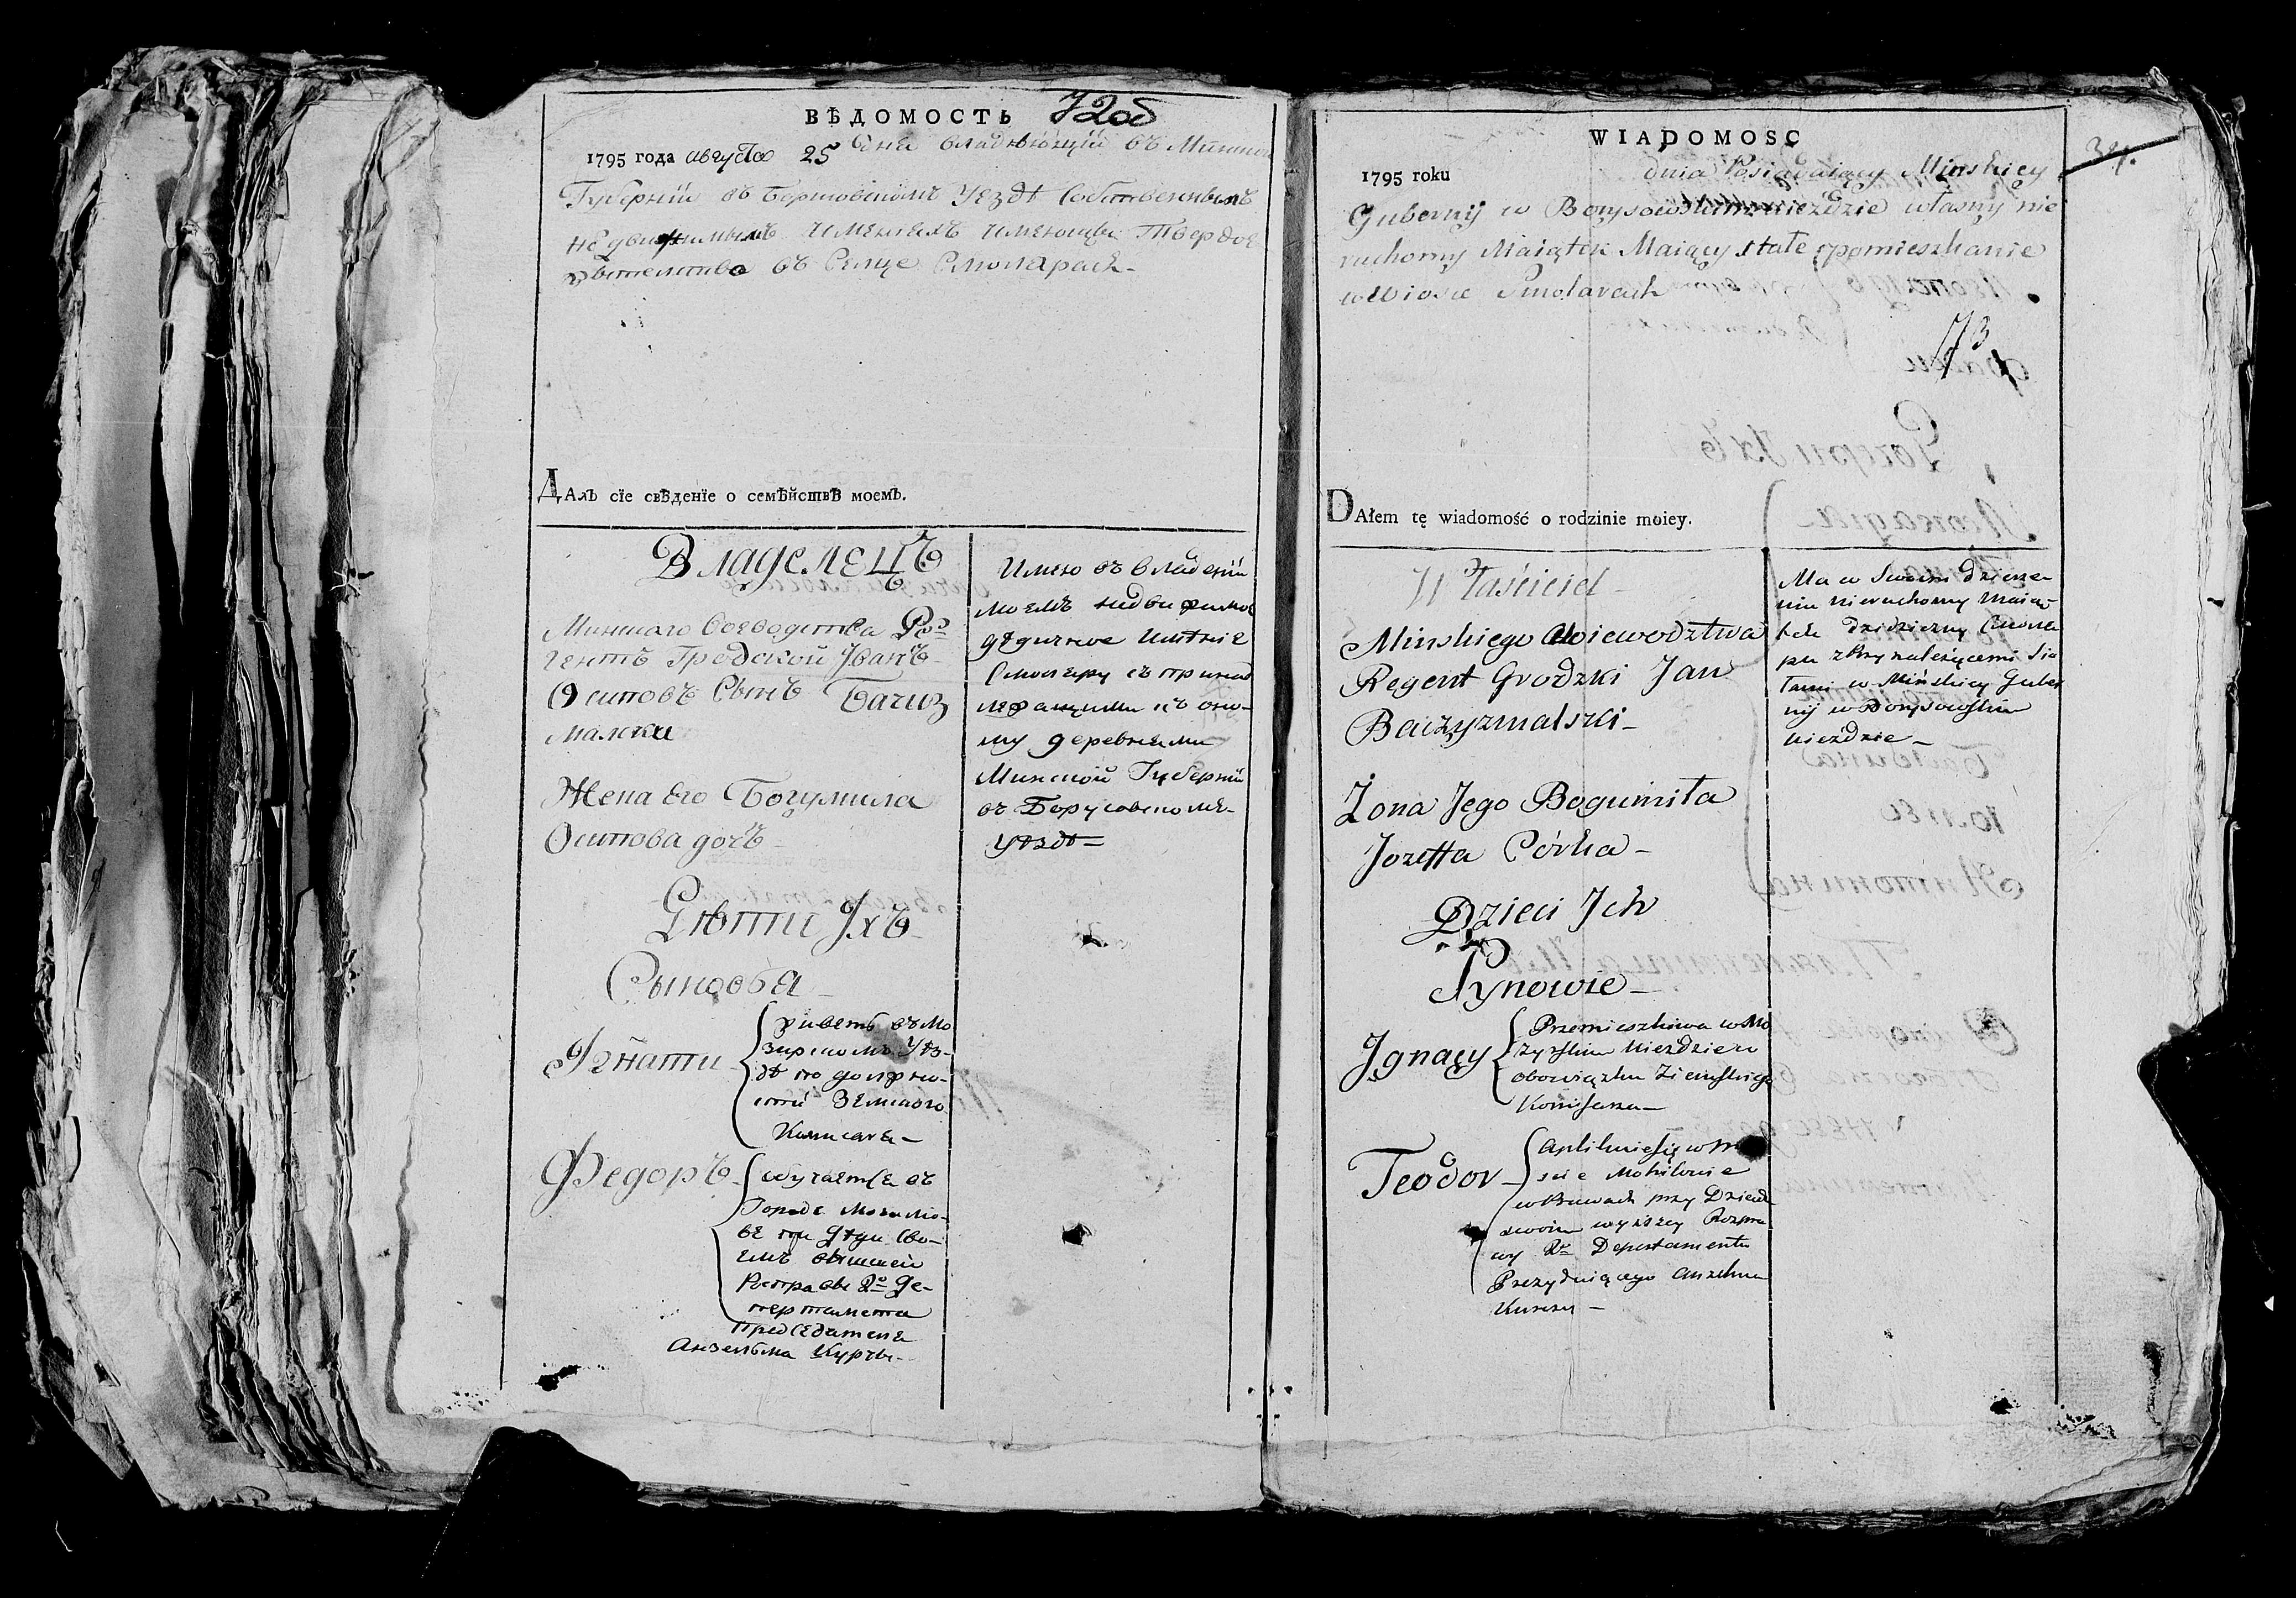 ВѢДОМОСТЬ 72об
1795 года августа 25 дня владѣющій въ Минской
Губерніи въ Борисовскомъ Уездѣ Собственнымъ
недвижимымъ имениемъ имеющи Твердое
жытелство въ Селце Смолярахъ-
ДАлъ сїе свѣденїе о семѣйствѣ моемъ.
Владелецъ
Минскаго Воеводства Ре-
гентъ Гродской Іванъ
Осиповъ Сынъ Бачиз
малски
Жена его Богумила
Осипова дочь-
Дѣти Ихъ
Сыновья
Игнати
живетъ въ Мо
зирскомъ Уѣз-
дѣ по должно-
сти Земского
Комисара-
Федоръ
обучается въ
Городе Могилю-
ве при дяди Сво-
емъ вышшей
Росправы 2го де-
партамента
Председателя
Анзельма Курчы-
Имею въ владении
моемъ недвижимое
дедичное имѣние
Смоляры съ принад
лежащими къ оно-
му деревнями
Минской Губерніи
въ Борусовскомъ-
Уѣздѣ-
WIADOMOSC 34.
1795 roku dnia Posiadaiący Minskiey
Gubernij w Borysowskim uieździe własny nie
ruchomy Maiątek Maiący stałe pomieszkanie
w Wiosce Smolarach
73
DAłem tę wiadomość o rodzinie moiey.
Właściciel-
Minskiego Woiewodztwa
Regent Grodzki Jan
Baczyzmalszki-
Żona Jego Bogumiła
Jozeffa Córka-
Dzieci Ich
Synowie-
Jgnacy
Przemieszkiwa w Mo
zyrskim Uieździe z
obowiązku Ziemskiego
Komisarza-
Teodor-
Aplikuie się w Mie
scie Mohilowie
w Prawach przy Dziedzi
swoim wyższey Rozpra
wy 2o Departamentu
Prezyduiącego Anzelma
Kurczy-
Ma w Swoim dzierże-
niu nieruchomy Maią-
tek dziedziczny Smola
ry z Przynależącemi Sio
łami w Minskiey Guber
nij w Borysowskim
Uieździe-